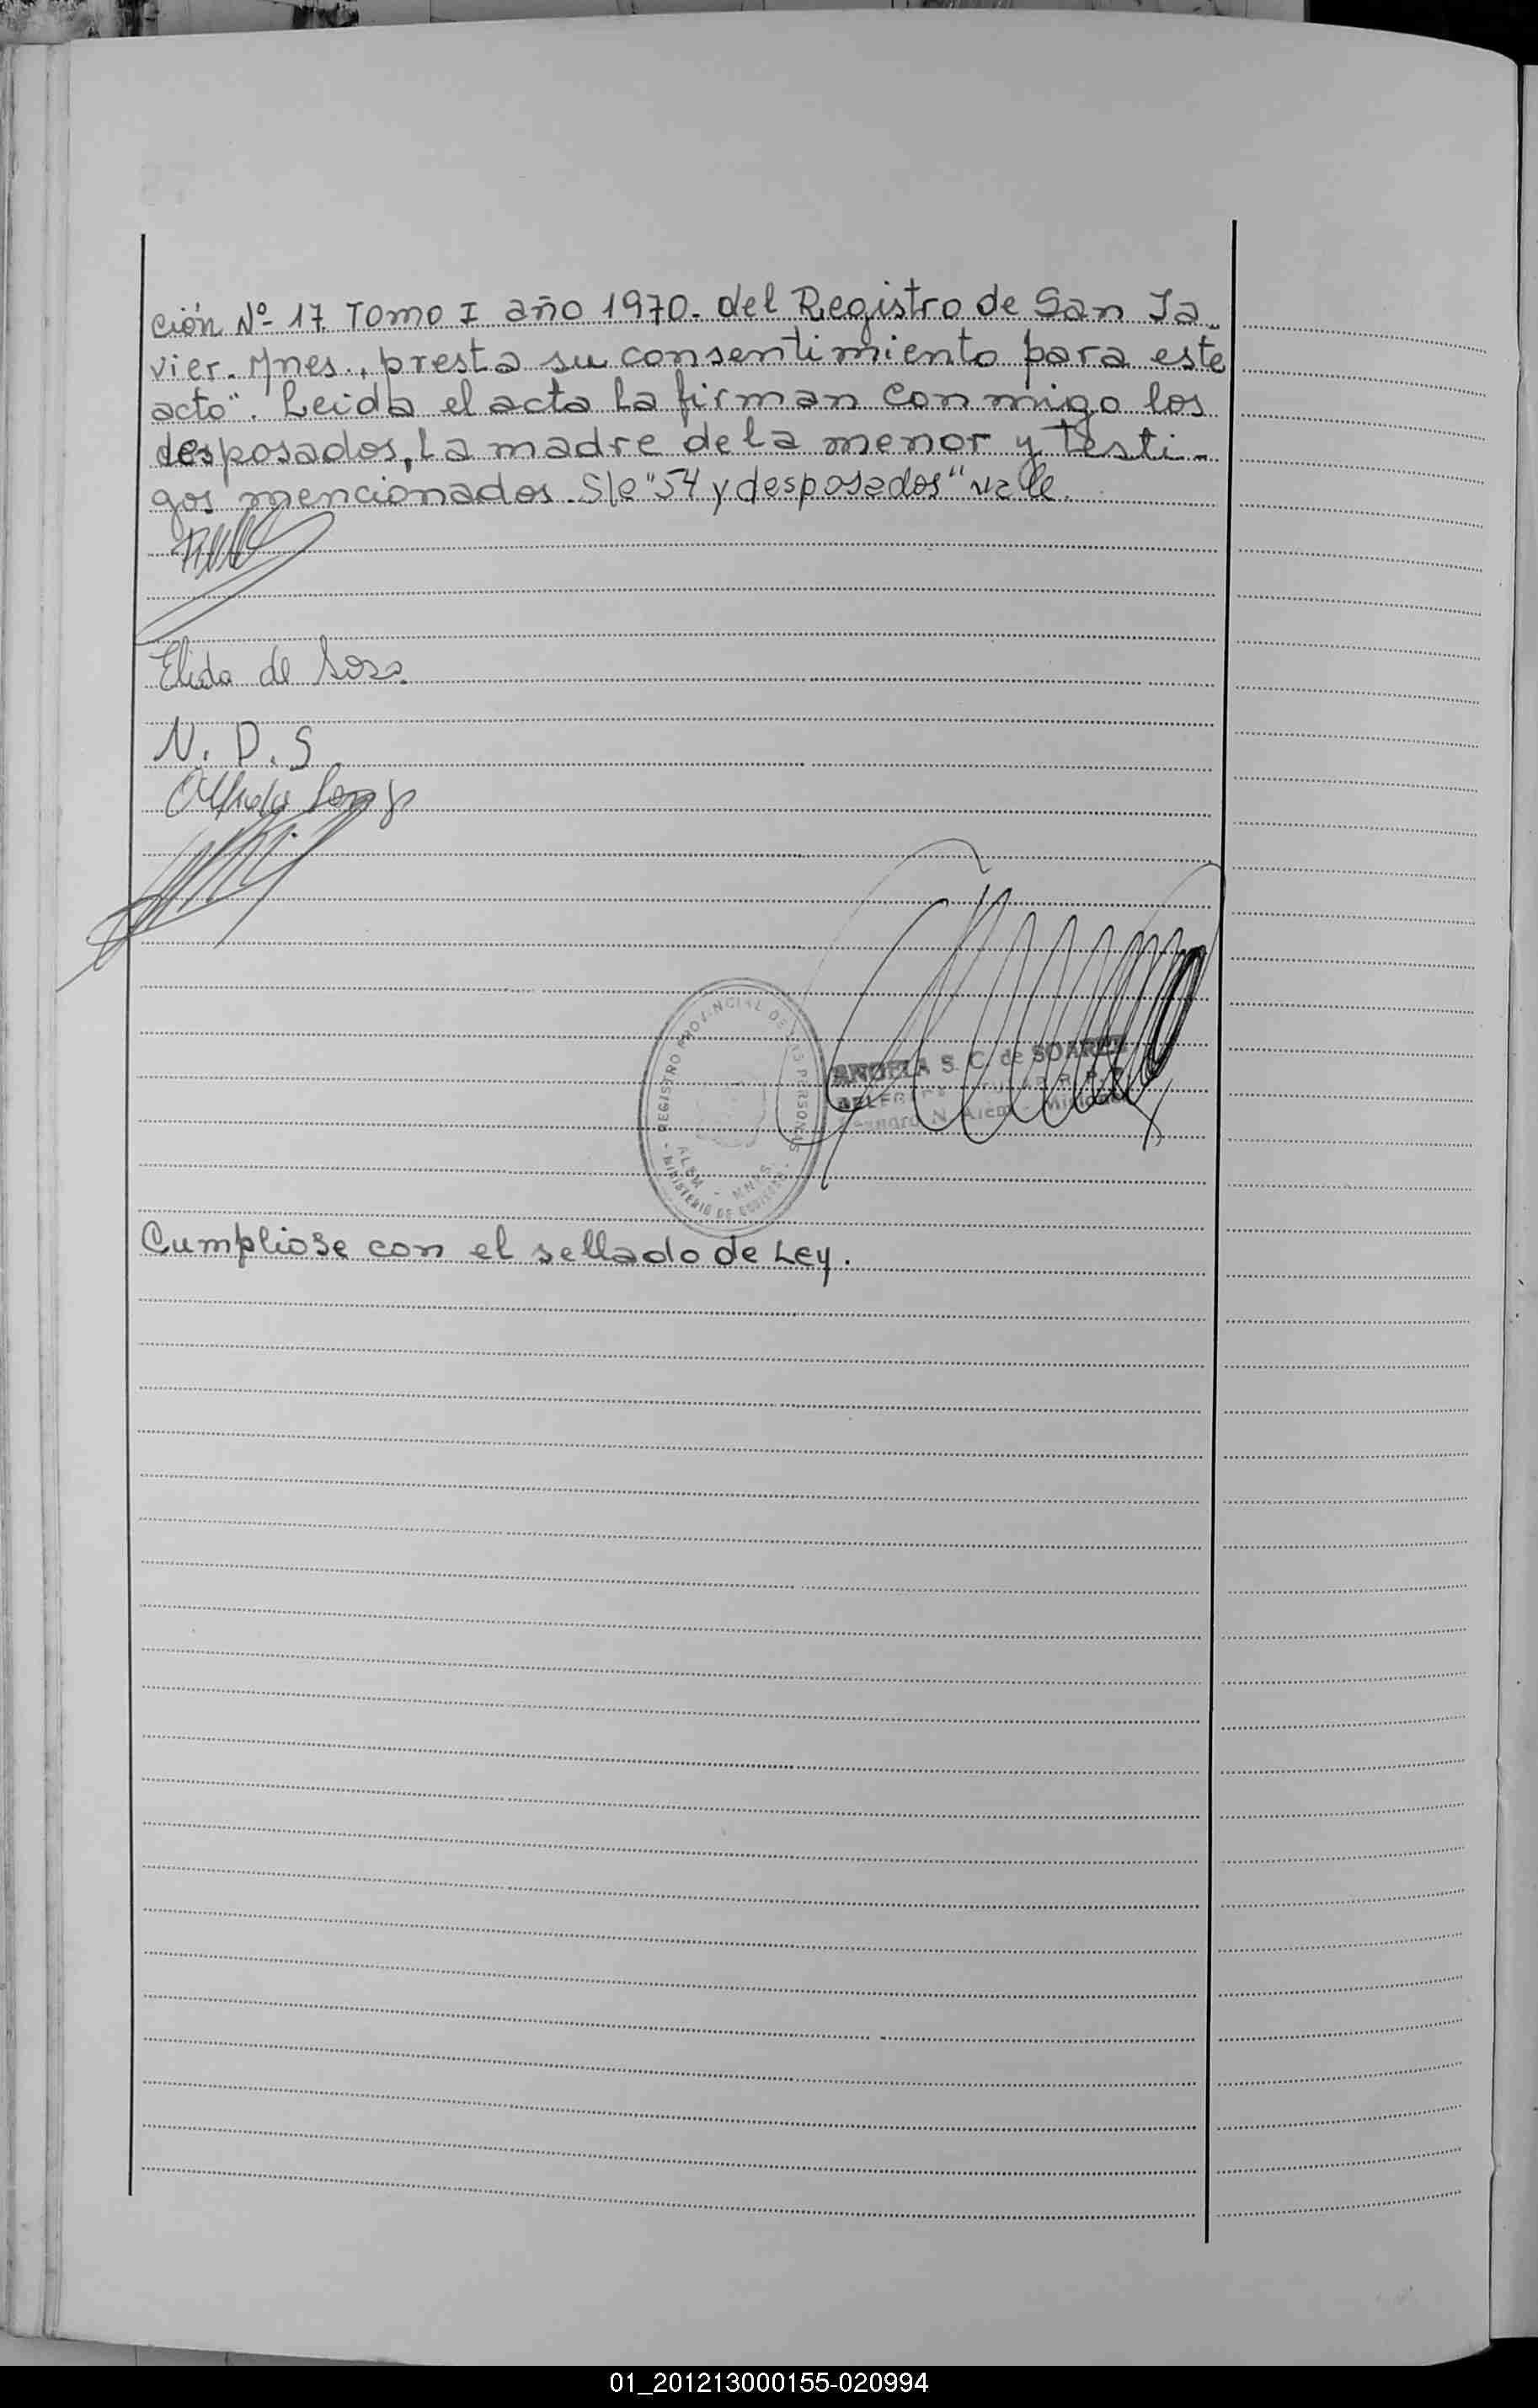 ción Nº 17 Tomo I año 1970. del Registro de San Ja-
vier. Mnes., presta su consentimiento para este
acto". Leida el acta la firman conmigo los
desposados, la madre de la menor y testi-
gos mencionados. S/e "54 y desposados" vale.
Elida de Sosa
N. D. S
REGISTRO PROVINCIAL DE LAS PERSONAS
ALEM - MNES.
- MINISTERIO DE GOBIERNO -
ANGELA S. C. de SOARES
N. Alem - Misiones
Cumpliose con el sellado de Ley.
01_201213000155-020994